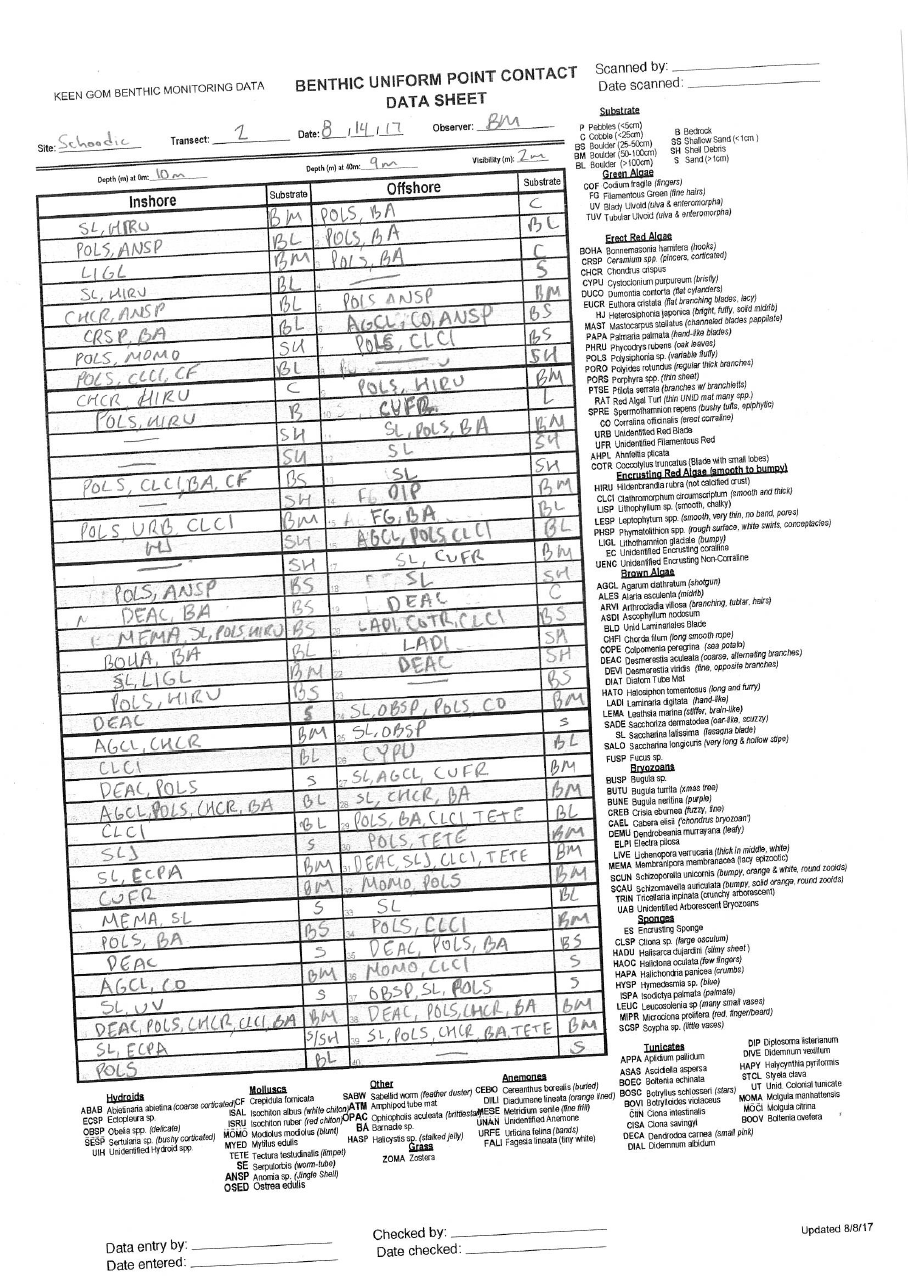 Scanned by:
Date scanned:
KEEN GOM BENTHIC MONITORING DATA
BENTHIC UNIFORM POINT CONTACT
DATA SHEET
Site: Schoodic Transect: 2 Date: 8 / 14 / 17 Observer: BM
Depth (m) at 0m: 10m Depth (m) at 40m: 9m Visibility (m): 2m
Inshore Substrate Offshore Substrate
SL, HIRU BM POLS, BA C
POLS, ANSP BL POLS, BA BL
LIGL BM POLS, BA C
SL, HIRU BL — S
CHCR, ANSP BL POLS ANSP BM
CRSP, BA BL AGCL, CO, ANSP BS
POLS, MOMO SH POLS, CLCI BS
POLS, CLCI, CF BL — SH
CHCR, HIRU C POLS, HIRU BM
POLS, HIRU B 10 CUFR
— SH SL, POLS, BA BM
— SH SL SH
POLS, CLCI, BA, CF BS SL SH
— SH FG DIP BM
POLS URB CLCI BM FG, BA BL
SH AGCL, POLS, CLCI BL
— SH 17 SL, CUFR BM
POLS, ANSP BS 18 SL SH
DEAC, BA BS 19 DEAC C
MEMA, SL, POLS HIRU BS LADI, COTR, CLCI BS
BOHA, BA BL 21 LADI SH
SL, LIGL BM 22 DEAC SH
POLS, HIRU BS 23 — BS
DEAC S 24 SL, OBSP, POLS, CO BM
AGCL, CHCR BM 25 SL, OBSP S
CLCI BL 26 CYPU BL
DEAC, POLS S 27 SL, AGCL, CUFR BM
AGCL, POLS, CHCR, BA BL 28 SL, CHCR, BA BM
CLCI BL 29 POLS, BA, CLCI, TETE BL
SLJ S 30 POLS, TETE BM
SL, ECPA BM 31 DEAC, SLJ, CLCI, TETE BM
CUFR BM 32 MOMO, POLS BM
MEMA, SL S 33 SL BL
POLS, BA BS 34 POLS, CLCI BM
DEAC S 35 DEAC, POLS, BA BS
AGCL, CO BM 36 MOMO, CLCI S
SL, UV S 37 OBSP, SL, POLS S
DEAC, POLS, CHCR, CLCI, BA BM 38 DEAC, POLS, CHCR, BA BM
SL, ECPA S/SH 39 SL, POLS, CHCR, BA, TETE BM
POLS BL 40 — S
Substrate
P Pebbles (<5cm)
C Cobble (<25cm)
BS Boulder (25-50cm)
BM Boulder (50-100cm)
BL Boulder (>100cm)
B Bedrock
SS Shallow Sand (<1cm )
SH Shell Debris
S Sand (>1cm)
Green Algae
COF Codium fragile (fingers)
FG Filamentous Green (fine hairs)
UV Blady Ulvoid (ulva & enteromorpha)
TUV Tubular Ulvoid (ulva & enteromorpha)
Erect Red Algae
BOHA Bonnemasonia hamifera (hooks)
CRSP Ceramium spp. (pincers, corticated)
CHCR Chondrus crispus
CYPU Cystoclonium purpureum (bristly)
DUCO Dumontia contorta (flat cylanders)
EUCR Euthora cristata (flat branching blades, lacy)
HJ Heterosiphonia japonica (bright, fluffy, solid midrib)
MAST Mastocarpus stellatus (channeled blades pappilate)
PAPA Palmaria palmata (hand-like blades)
PHRU Phycodrys rubens (oak leaves)
POLS Polysiphonia sp. (variable fluffy)
PORO Polyides rotundus (regular thick branches)
PORS Porphyra spp. (thin sheet)
PTSE Ptilota serrata (branches w/ branchletts)
RAT Red Algal Turf (thin UNID mat many spp.)
SPRE Spermothamnion repens (bushy tufts, epiphytic)
CO Corallina officinalis (erect corralline)
URB Unidentified Red Blade
UFR Unidentified Filamentous Red
AHPL Ahnfeltia plicata
COTR Coccotylus truncatus (Blade with small lobes)
Encrusting Red Algae (smooth to bumpy)
HIRU Hildenbrandia rubra (not calcified crust)
CLCI Clathromorphum circumscriptum (smooth and thick)
LISP Lithophyllum sp. (smooth, chalky)
LESP Leptophytum spp. (smooth, very thin, no band, pores)
PHSP Phymatolithion spp. (rough surface, white swirls, conceptacles)
LIGL Lithothamnion glaciale (bumpy)
EC Unidentified Encrusting coralline
UENC Unidentified Encrusting Non-Corraline
Brown Algae
AGCL Agarum clathratum (shotgun)
ALES Alaria esculenta (midrib)
ARVI Arthrocladia villosa (branching, tublar, hairs)
ASDI Ascophyllum nodosum
BLD Unid Laminariales Blade
CHFI Chorda filum (long smooth rope)
COPE Colpomenia peregrina (sea potato)
DEAC Desmerestia aculeata (coarse, alternating branches)
DEVI Desmerestia viridis (fine, opposite branches)
DIAT Diatom Tube Mat
HATO Halosiphon tomentosus (long and furry)
LADI Laminaria digitata (hand-like)
LEMA Leathsia marina (stiffer, brain-like)
SADE Sacchoriza dermatodea (oar-like, scuzzy)
SL Saccharina latissima (lasagna blade)
SALO Saccharina longicuris (very long & hollow stipe)
FUSP Fucus sp.
Bryozoans
BUSP Bugula sp.
BUTU Bugula turrita (xmas tree)
BUNE Bugula neritina (purple)
CREB Crisia eburnea (fuzzy, fine)
CAEL Cabera elisii ('chondrus bryozoan')
DEMU Dendrobeania murrayana (leafy)
ELPI Electra pilosa
LIVE Lichenopora verrucaria (thick in middle, white)
MEMA Membranipora membranacea (lacy epizootic)
SCUN Schizoporella unicornis (bumpy, orange & white, round zooids)
SCAU Schizomavella auriculata (bumpy, solid orange, round zooids)
TRIN Tricellaria inpinata (crunchy arborescent)
UAB Unidentified Arborescent Bryozoans
Sponges
ES Encrusting Sponge
CLSP Cliona sp. (large osculum)
HADU Halisarca dujardini (slimy sheet )
HAOC Haliclona oculata (few fingers)
HAPA Halichondria panicea (crumbs)
HYSP Hymedesmia sp. (blue)
ISPA Isodictya palmata (palmate)
LEUC Leucosolenia sp (many small vases)
MIPR Microciona prolifera (red, finger/beard)
SCSP Scypha sp. (little vases)
Tunicates
APPA Aplidium pallidum
ASAS Ascidiella aspersa
BOEC Boltenia echinata
BOSC Botryllus schlosseri (stars)
BOVI Botrylloides violaceus
CIIN Ciona intestinalis
CISA Ciona savingyi
DECA Dendrodoa carnea (small pink)
DIAL Didemnum albidum
DIP Diplosoma listerianum
DIVE Didemnum vexillum
HAPY Halocynthia pyriformis
STCL Styela clava
UT Unid. Colonial tunicate
MOMA Molgula manhattensis
MOCI Molgula citrina
BOOV Boltenia ovefera
Hydroids
ABAB Abietinaria abietina (coarse corticated)
ECSP Ectopleura sp.
OBSP Obelia spp. (delicate)
SESP Sertularia sp. (bushy corticated)
UIH Unidentified Hydroid spp.
Molluscs
CF Crepidula fornicata
ISAL Isochiton albus (white chiton)
ISRU Isochiton ruber (red chiton)
MOMO Modiolus modiolus (blunt)
MYED Mytilus edulis
TETE Tectura testudinalis (limpet)
SE Serpulorbis (worm-tube)
ANSP Anomia sp. (Jingle Shell)
OSED Ostrea edulis
Other
SABW Sabellid worm (feather duster)
ATM Amphipod tube mat
OPAC Ophiopholis aculeata (brittlestar)
BA Barnacle sp.
HASP Halicystis sp. (stalked jelly)
Grass
ZOMA Zostera
Anemones
CEBO Cereanthus borealis (buried)
DILI Diadumene lineata (orange lined)
MESE Metridium senile (fine frill)
UNAN Unidentified Anemone
URFE Urticina felina (bands)
FALI Fagesia lineata (tiny white)
Data entry by:
Date entered:
Checked by:
Date checked:
Updated 8/8/17